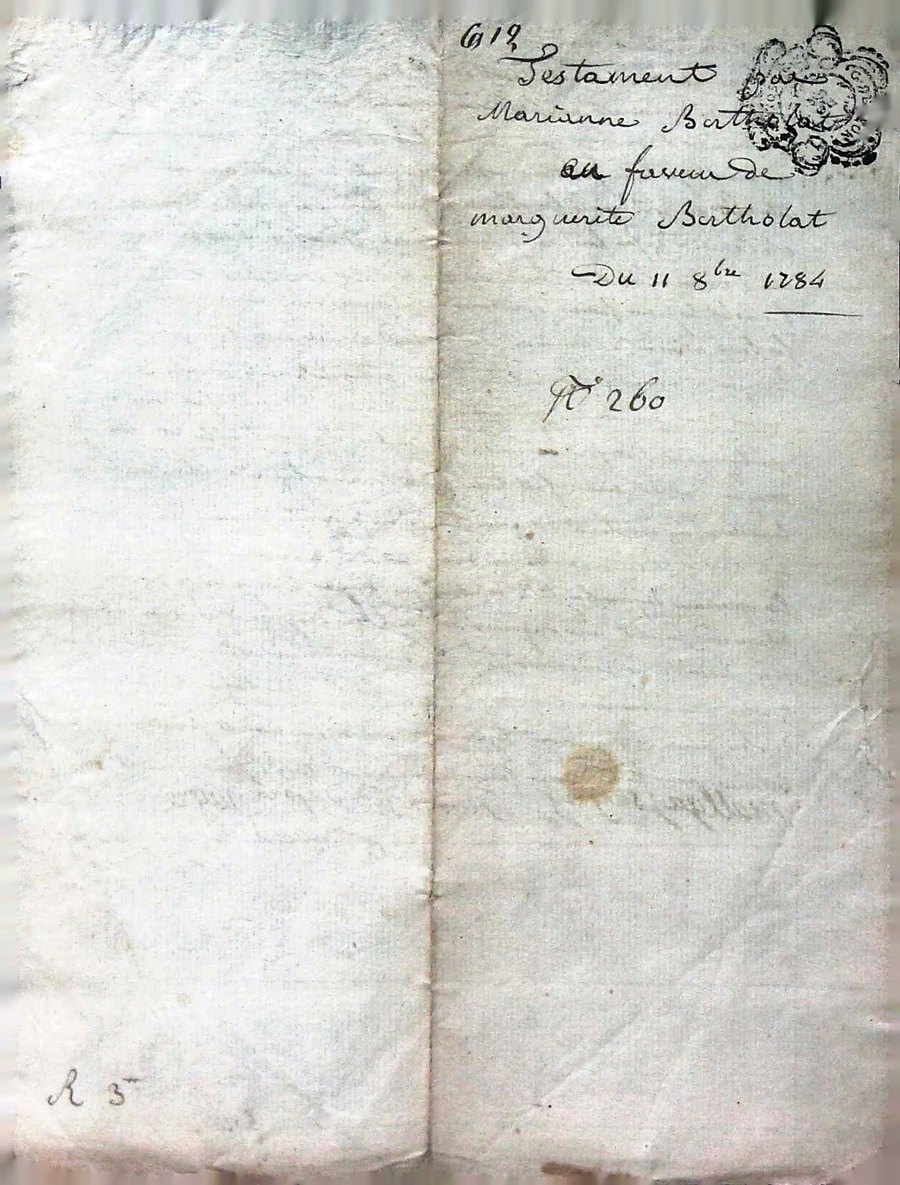 Testament par
Marianne Bertholat
en faveur de
marguerite Bertholat
Du 11 8bre 1784
N° 260
R 3